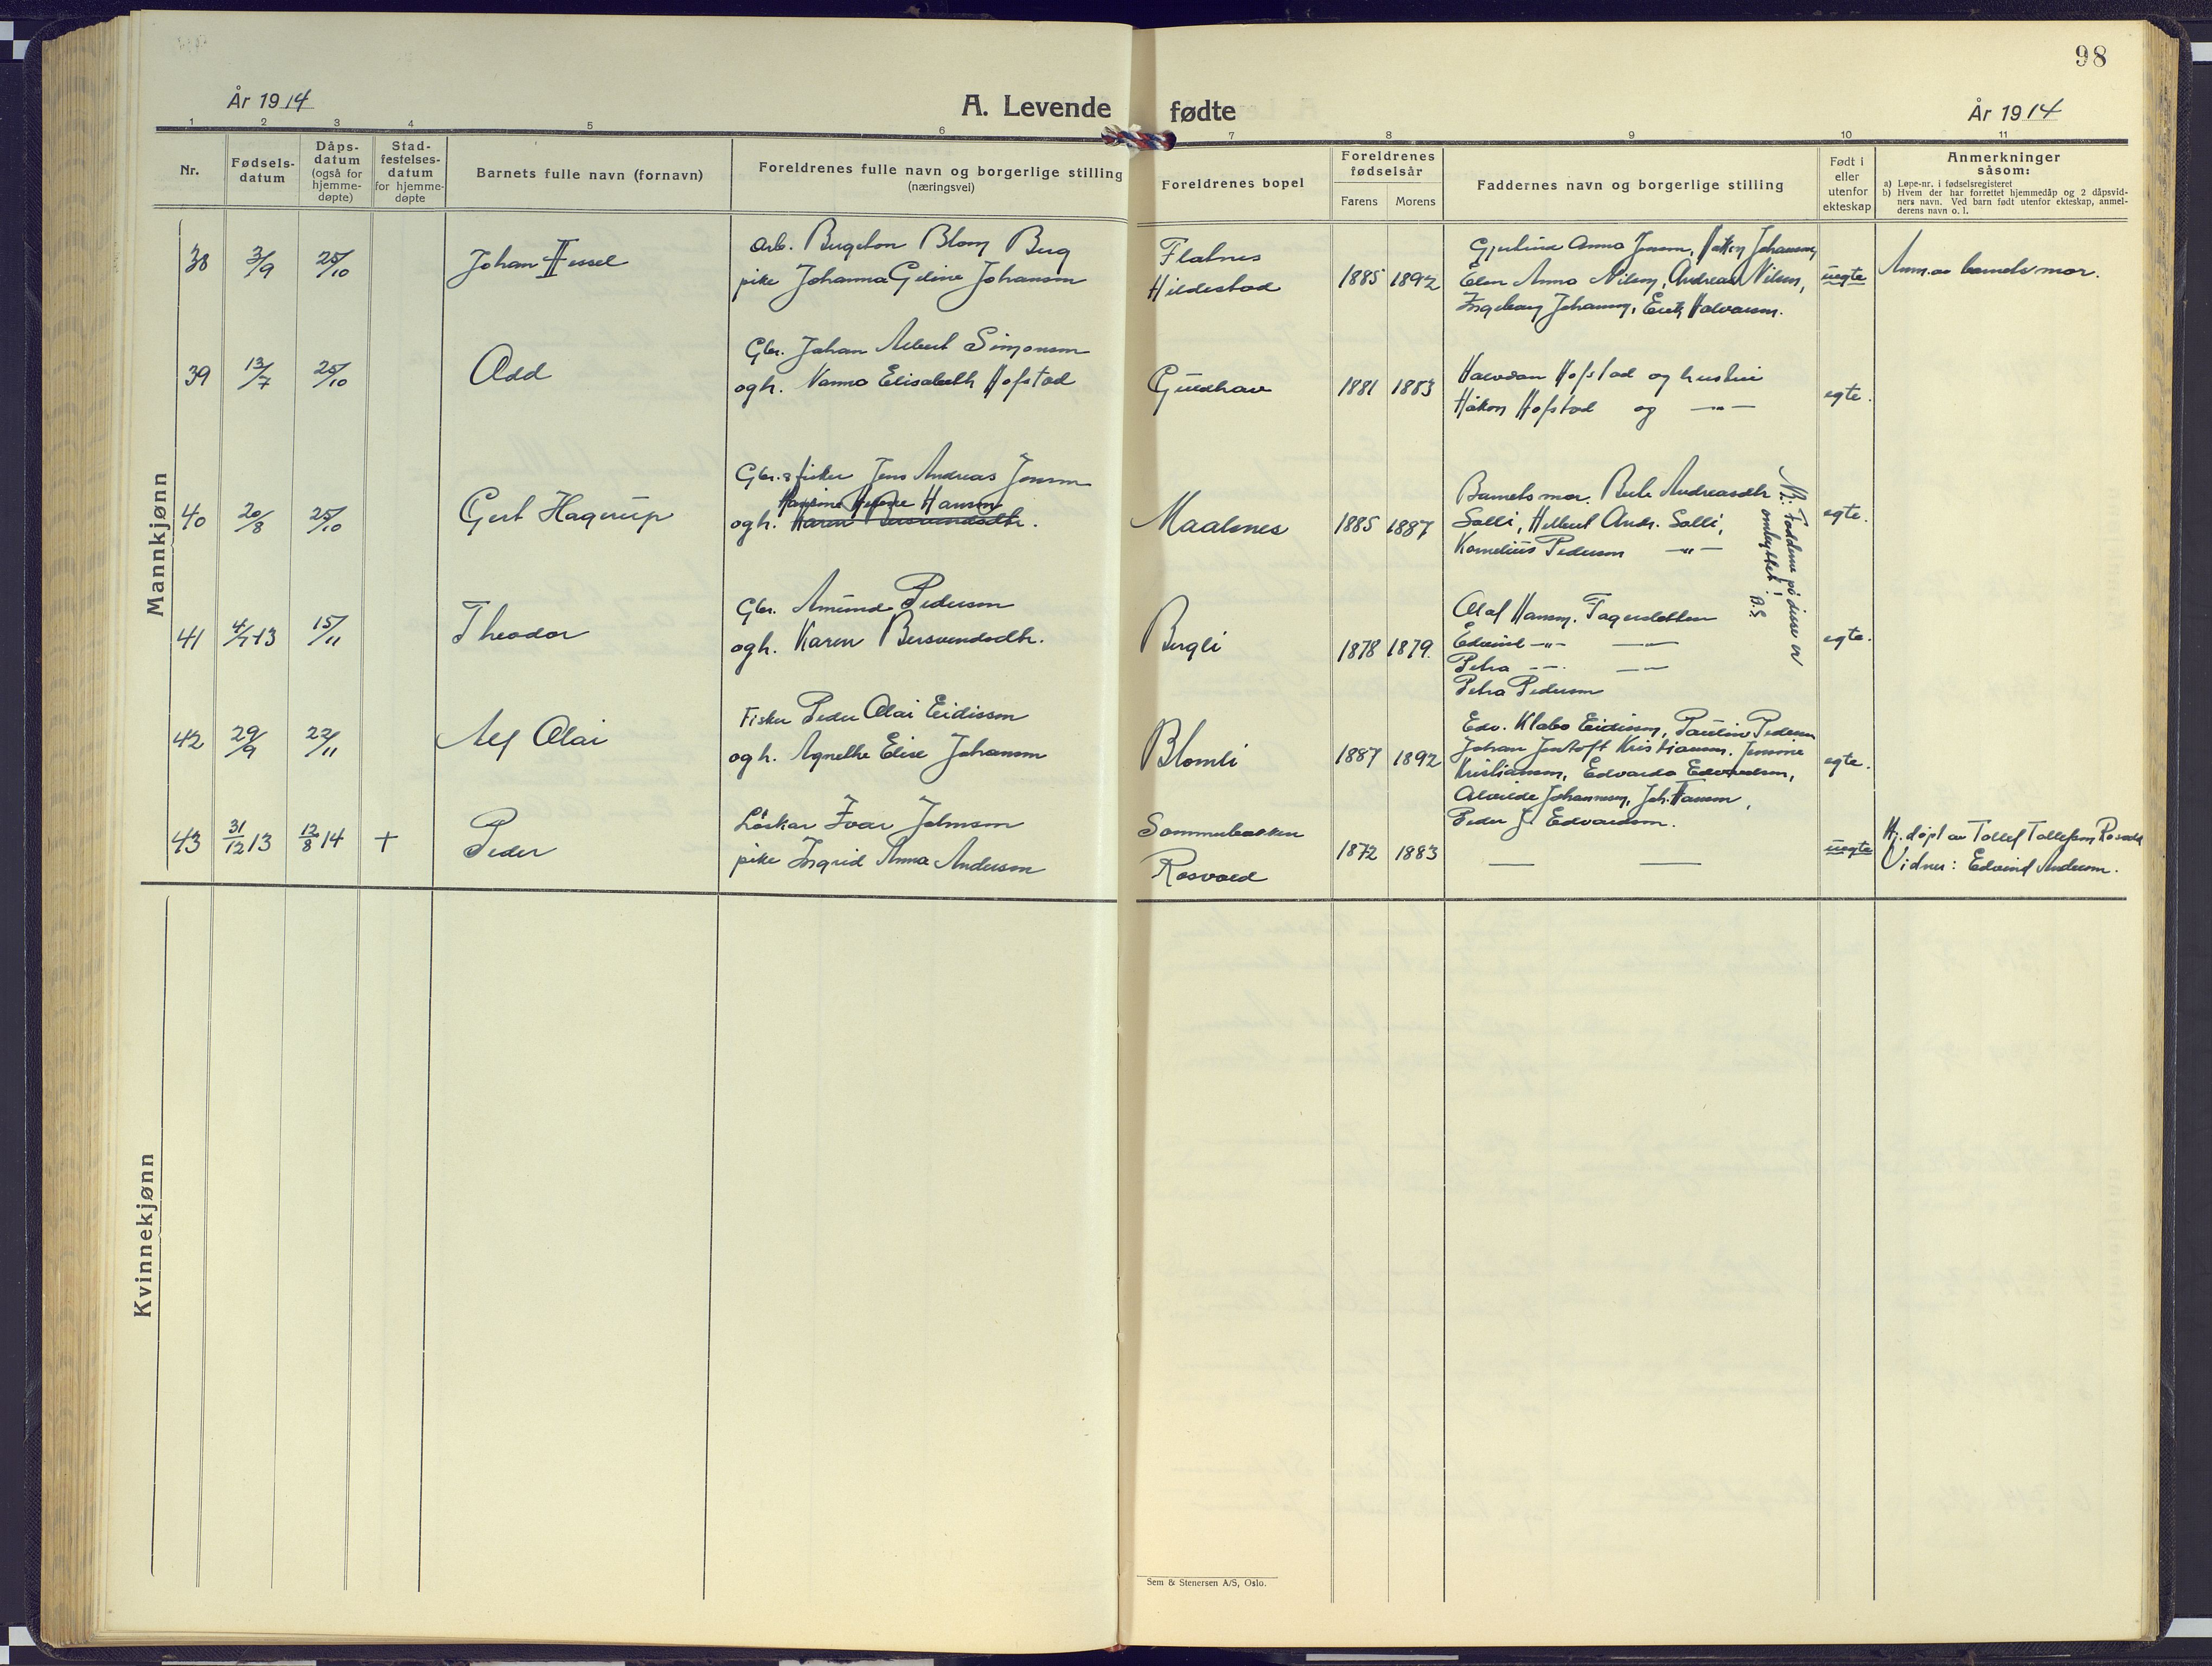 98
År 1914
A. Levende fødte
År 1914
1 2 3 4 5 6 7 8 9 10 11
Nr.
Fødsels-
datum
Dåps-
datum
(også for
hjemme-
døpte)
Stad-
festelses-
datum
for hjemme-
døpte
Barnets fulle navn (fornavn)
Foreldrenes fulle navn og borgerlige stilling
(næringsvei)
Foreldrenes bopel
Foreldrenes
fødselsår
Farens Morens
Faddernes navn og borgerlige stilling
Født i
eller
utenfor
ekteskap
Anmerkninger
såsom:
a) Løpe-nr. i fødselsregisteret
b) Hvem der har forrettet hjemmedåp og 2 dåpsvid-
ners navn. Ved barn født utenfor ekteskap, anmel-
derens navn o. l.
Mannkjønn
38 3/9 25/10 Johan Hessel
Arb. Blom Berg
pike Johanna Geline Johansen
Flatnes
Hildestad
1885 1892
Anna Jensen, Håkon Johansen,
Elen Anna Nilsen, Andreas Nilsen,
Ingeborg Johansen, Halvorsen.
uegte
Anm. av barnets mor.
39 13/7 25/10 Odd
Gbr. Johan Albert Simonsen
og h. Nanna Elisabeth Hofstad
Guldhav
1881 1883
Halvdan Hofstad og hustru
Håkon Hofstad og —"—
egte.
40 20/8 25/10 Gert Hagerup
Gbr. & fisker Jens Andreas Jensen
Hansen
og h. Karen Bersvendsdtr.
Maalsnes
1885 1887
Barnets mor. Berle Andreasdtr
Solli, Helbert Andr. Solli,
Kornelius Pedersen —"—
egte.
NB: Fadderne på disse er
ombyttet! B.S
41 4/7 13 15/11 Theodor
Gbr. Amund Pedersen
og h. Karen Bersvendsdtr.
Bergli
1878 1879.
Olaf Hansen. Fagersletten
Edvind —"— —"—
Petra —"— —"—
Petra Pedersen
egte.
42 29/9 22/11 Alf Olai
Fisker Peder Olai Eidissen
og h. Agnethe Elise Johansen
Blomli
1887 1892
Edv. Klabo Eidissen, Pauline Pedersen
Johan Jentoft Kristiansen. Jensine
Kristiansen, Edvarda Edvardsen,
Alvilde Johannesen, Joh. Hansen,
Peder J. Edvardsen.
egte.
43 31/12 13 12/8 14 + Peder
Løskar Ivar Johnsen
pike Ingrid Anna Andersen
Sommerbakken
Rosvold
1872 1883
— —
uegte
Hj. døpt av Tollef Tollefsen Rosvold
Vidner: Edvind Andersen.
Kvinnekjønn
Sem & Stenersen A/S, Oslo.